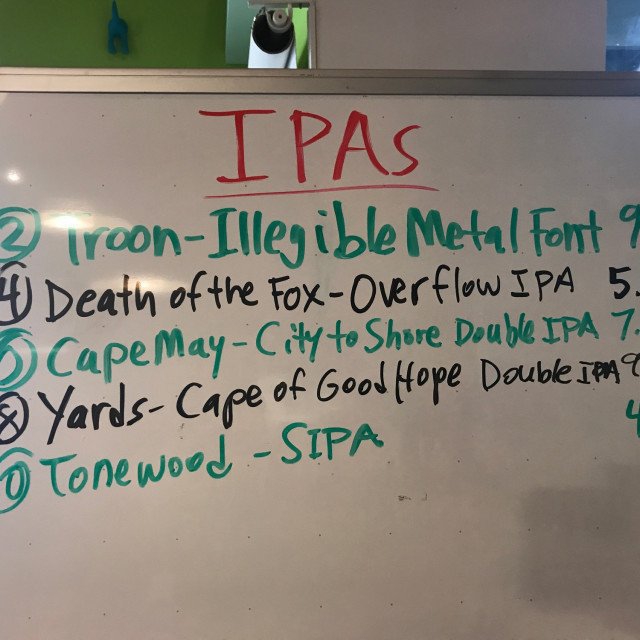 IPAs
2 Troon-Illegible Metal Font 9
4 Death of the Fox-Overflow IPA 5.
Cape May-City to Shore Double IPA 7.
8 Yards-Cape of Good Hope Double IPA 9
4
0 Tonewood - SIPA